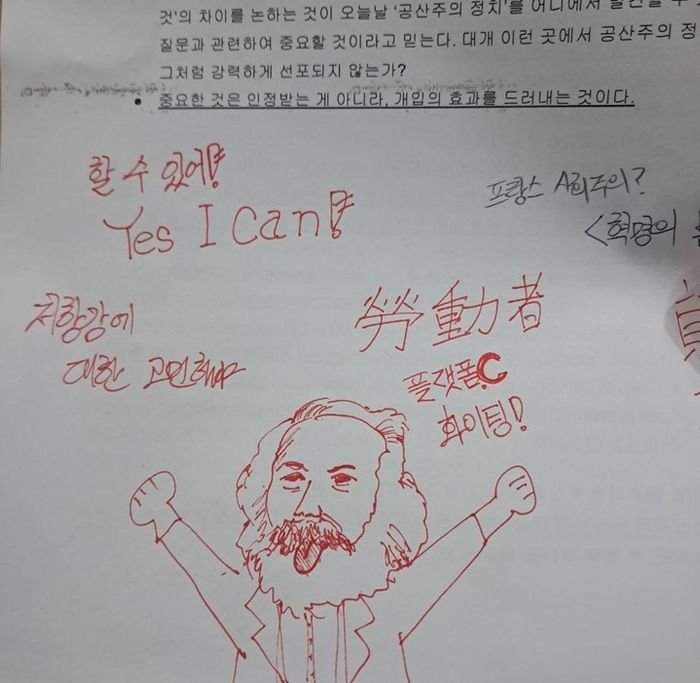 것'의 차이를 논하는 것이 오늘날 '공산주의 정치'를 어디에서
질문과 관련하여 중요할 것이라고 믿는다. 대개 이런 곳에서 공산주의 정
그처럼 강력하게 선포되지 않는가?
• 중요한 것은 인정받는 게 아니라, 개입의 효과를 드러내는 것이다.
할 수 있어!
Yes I Can!
프랑스 A회주의?
<혁명의
저항감에
대한 고민해야
勞動者
플랫폼C
화이팅!